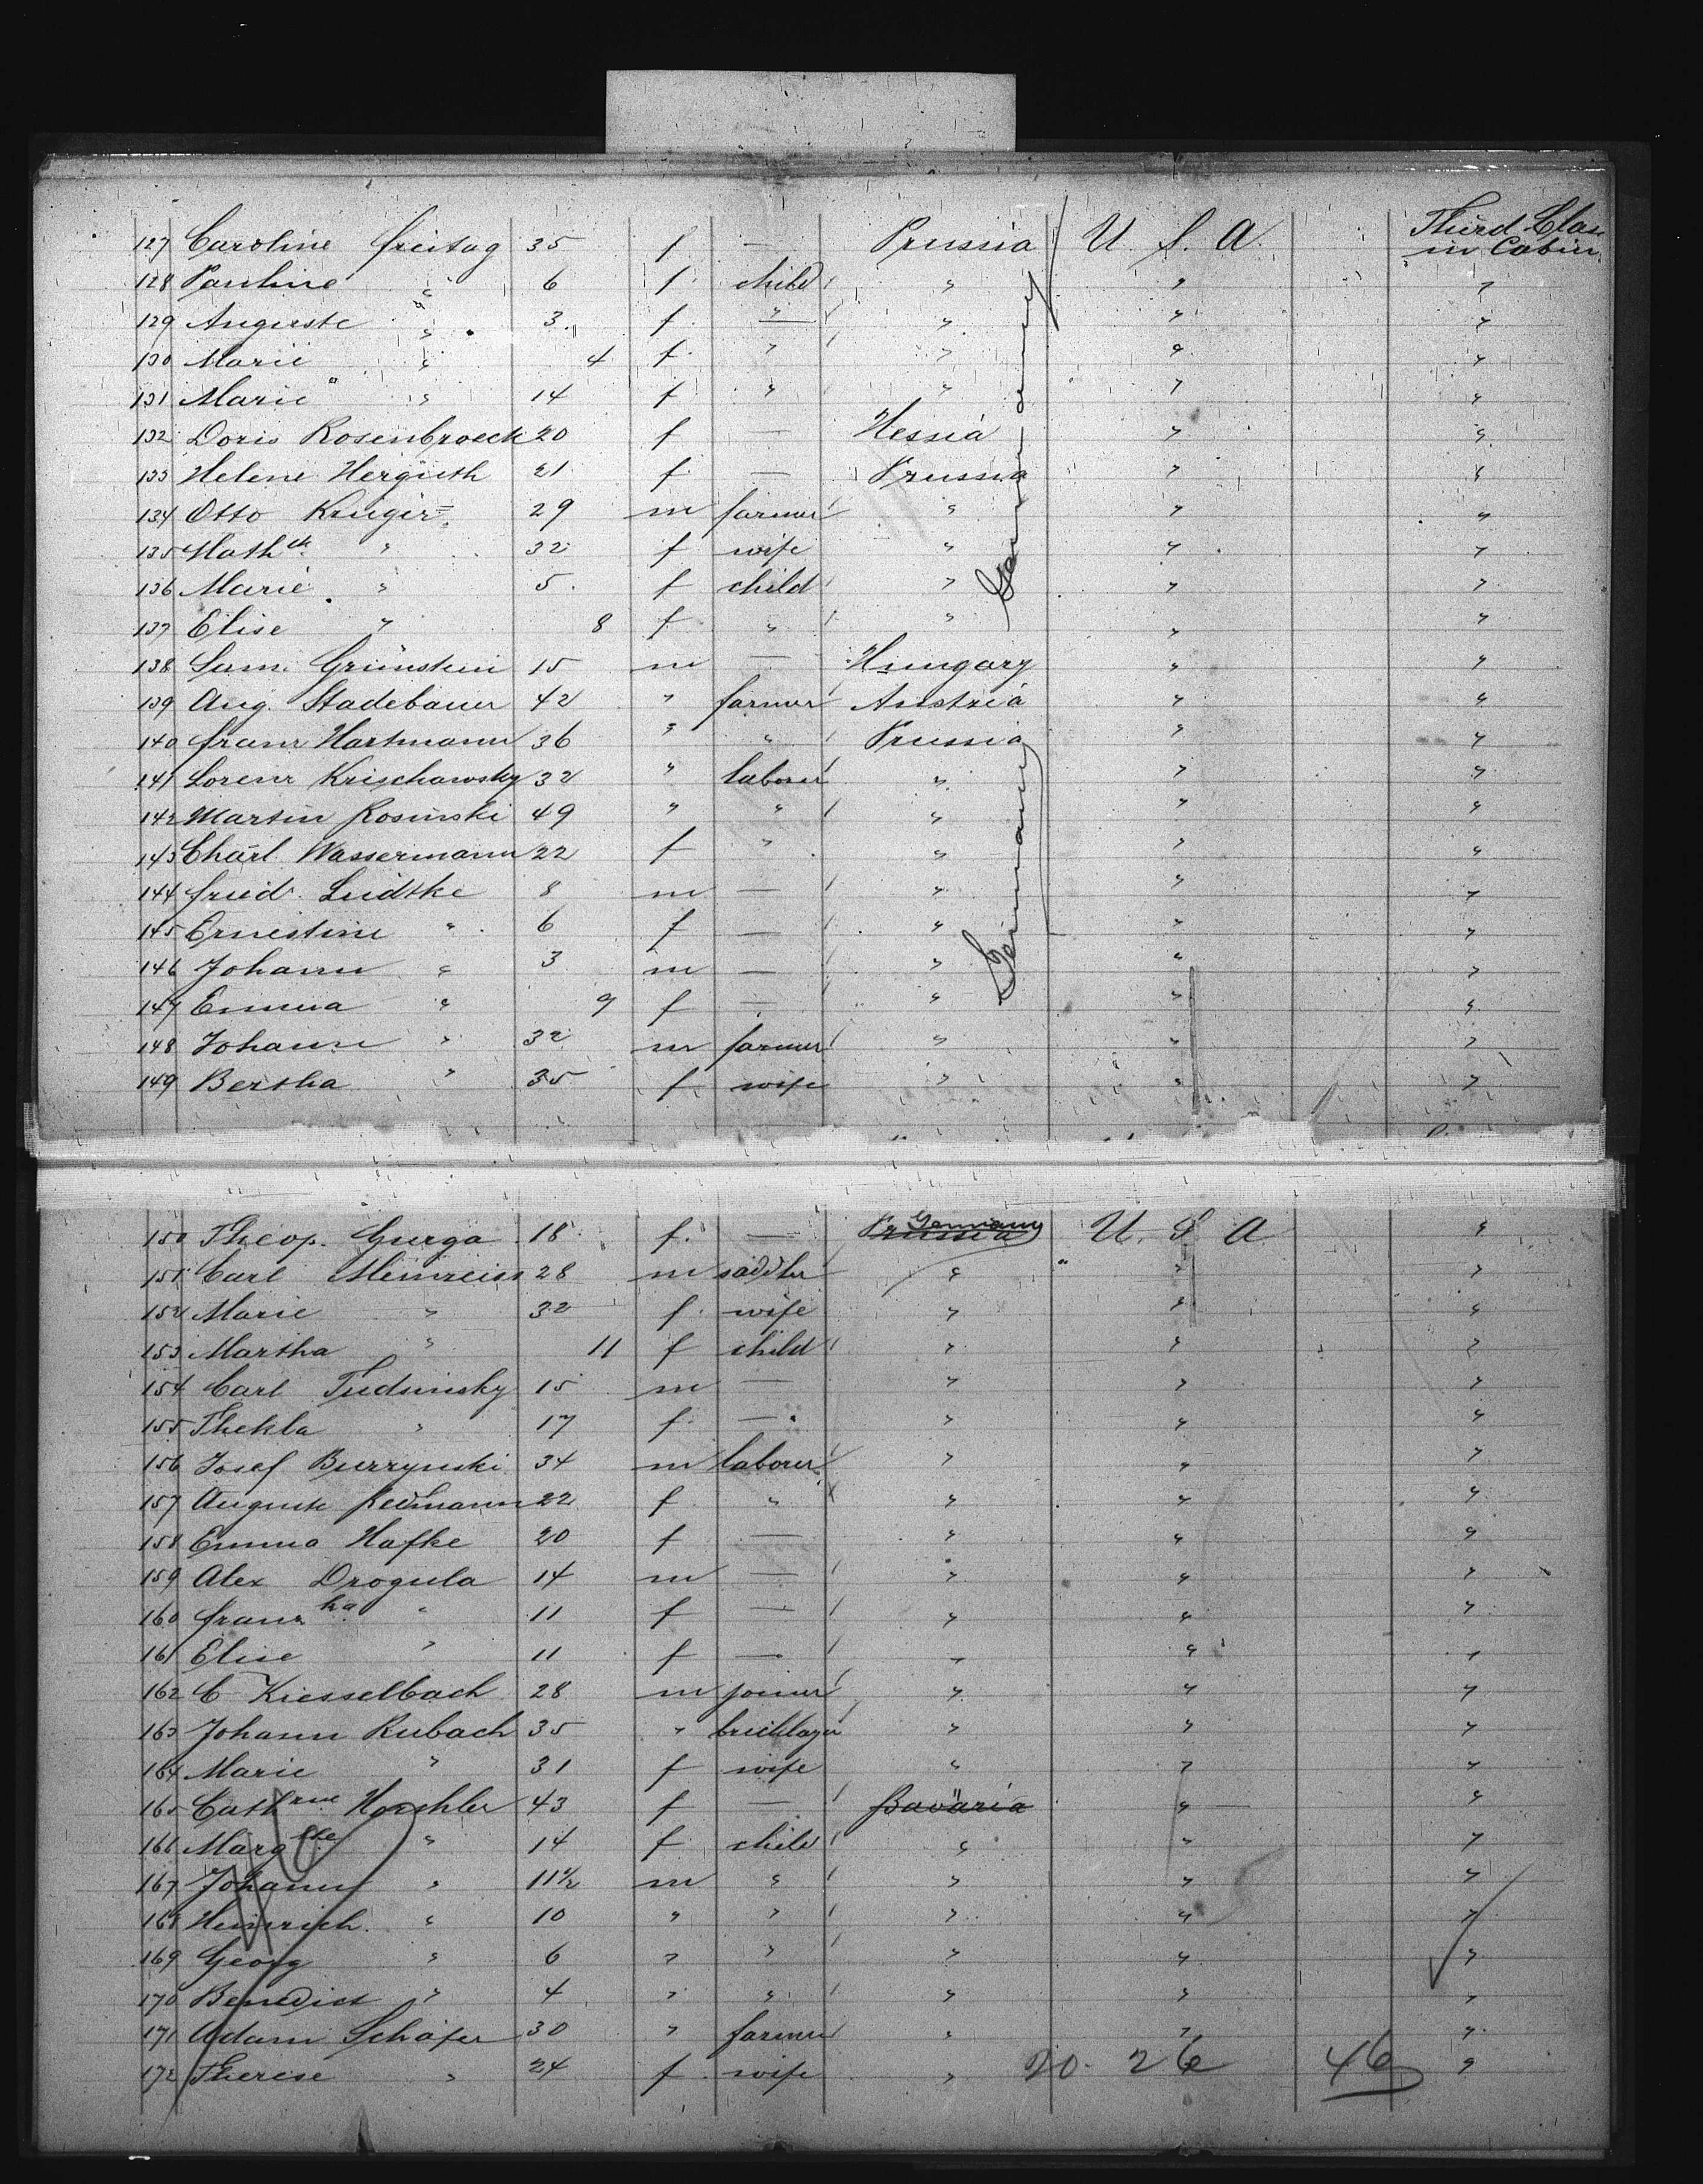 127 Caroline Freitag 35 f — Prussia U. S. A. Third Class in Cabin
128 Pauline " 6 f child " " "
129 Auguste " 3 f " " " "
130 Marie " 4 f " " " "
131 Marie " 14 f " " " "
132 Doris Rosenbroeck 20 f — Hessia " "
133 Helene Herguth 21 f — Prussia " "
134 Otto Krüger 29 m farmer " " "
135 Math " 32 f wife " " "
136 Marie " 5 f child " " "
137 Elise " 8 f " " " "
Germany
138 Sam. Grünstein 15 m — Hungary " "
139 Aug. Stadebauer 42 " farmer Austria " "
140 Franz Hartmann 36 " " Prussia " "
141 Lorenz Krischawsky 32 " laborer " " "
142 Martin Rosinski 49 " " " " "
143 Charl. Wassermann 22 f " " " "
144 Fried. Ludtke 8 m — " " "
145 Ernestine " 6 f — " " "
146 Johann " 3 m — " " "
147 Emma " 9 f — " " "
Germany
148 Johann " 32 m farmer " " "
149 Bertha " 35 f wife " " "
150 Theop. Gurga 18 f. — Prussia Germany U. S. A "
151 Carl Meinreiss 28 m saddler " " "
152 Marie " 32 f. wife " " "
153 Martha " 11 f child " " "
154 Carl Tudsinsky 15 m — " " "
155 Thekla " 17 f. — " " "
156 Josef Burzynski 34 m laborer " " "
157 Auguste Redmann 22 f " " " "
158 Emma Hafke 20 f — " " "
159 Alex Drogula 14 m — " " "
160 Franz ka " 11 f — " " "
161 Elise " 11 f — " " "
162 C Kiesselbach 28 m joiner " " "
163 Johann Rubach 35 " bricklayer " " "
164 Marie " 31 f wife " " "
165 Cath rine 43 f — Bavaria " "
166 Marg the " 14 f child " " "
167 Johann " 11½ m " " " "
168 Heinrich " 10 " " " " "
169 Georg " 6 " " " " "
170 Benedict " 4 " " " " "
171 Adam Schäfer 30 " farmer " " "
172 Therese " 24 f. wife " 20. 26 46 "